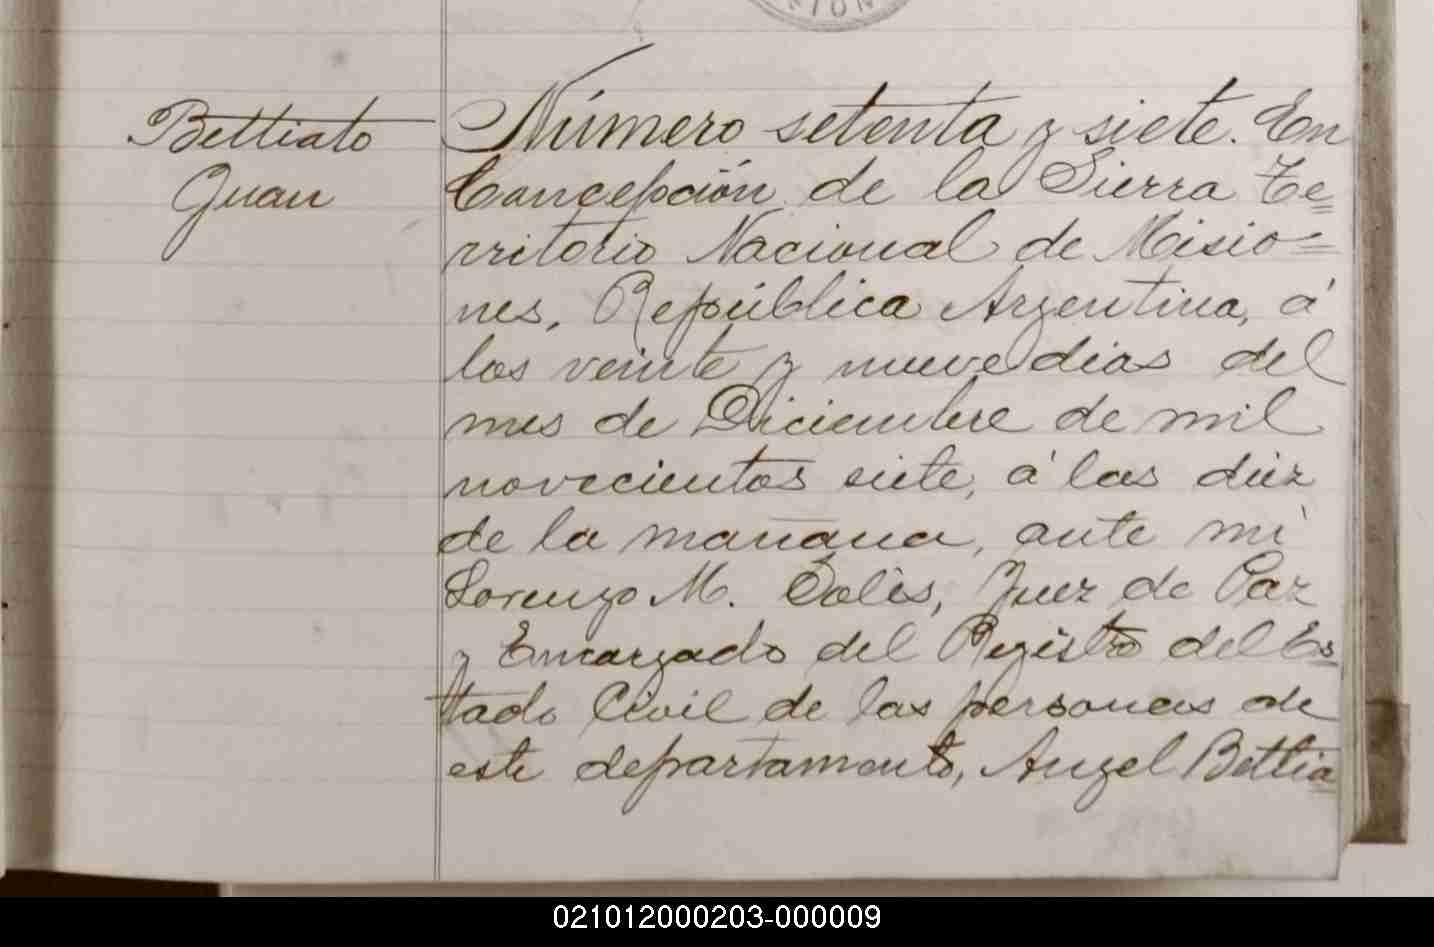 CION
Bettiato
Juan
Número setenta y siete. En
Concepción de la Sierra Te=
rritorio Nacional de Misio=
nes, República Argentina, á
los veinte y nueve dias del
mes de Diciembre de mil
novecientos siete, á las diez
de la mañana, ante mi
Lorenzo M. Solis, Juez de Paz
y Encargado del Registro del Es=
tado Civil de las personas de
este departamento, Angel Bettia=
021012000203-000009